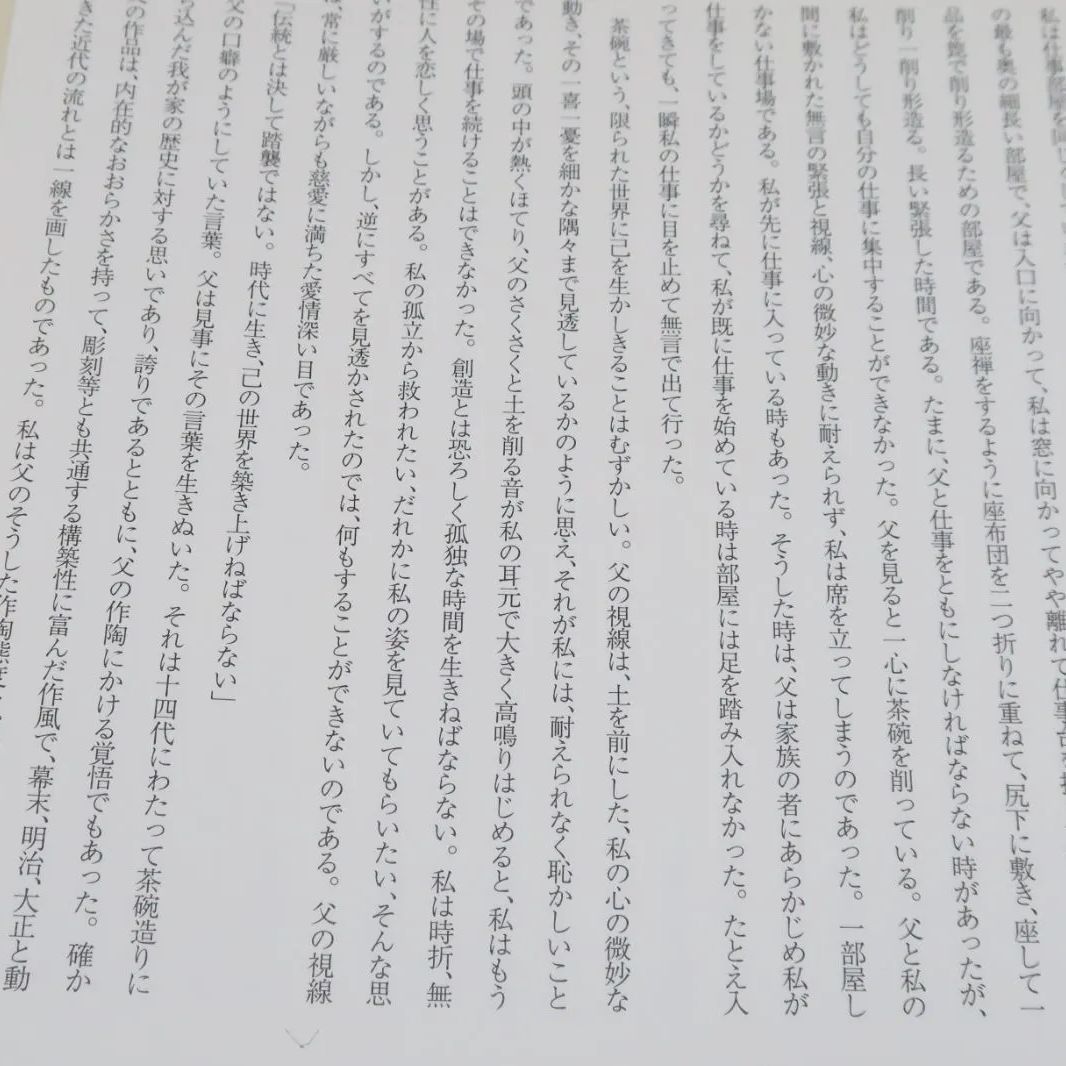 の最も奥の細長い部屋で、父は入口に向かって、私は窓に向かってやや離れて仕事台を
品を箆で削り形造るための部屋である。座禅をするように座布団を二つ折りに重ねて、尻下に敷き、座して一
削り一削り形造る。長い緊張した時間である。たまに、父と仕事をともにしなければならない時があったが、
私はどうしても自分の仕事に集中することができなかった。父を見ると一心に茶碗を削っている。父と私の
間に敷かれた無言の緊張と視線、心の微妙な動きに耐えられず、私は席を立ってしまうのであった。一部屋し
かない仕事場である。私が先に仕事に入っている時もあった。そうした時は、父は家族の者にあらかじめ私が
仕事をしているかどうかを尋ねて、私が既に仕事を始めている時は部屋には足を踏み入れなかった。たとえ入
ってきても、一瞬私の仕事に目を止めて無言で出て行った。
茶碗という、限られた世界に己を生かしきることはむずかしい。父の視線は、土を前にした、私の心の微妙な
動き、その一喜一憂を細かな隅々まで見透しているかのように思え、それが私には、耐えられなく恥かしいこと
であった。頭の中が熱くほてり、父のさくさくと土を削る音が私の耳元で大きく高鳴りはじめると、私はもう
その場で仕事を続けることはできなかった。創造とは恐ろしく孤独な時間を生きねばならない。私は時折、無
性に人を恋しく思うことがある。私の孤立から救われたい、だれかに私の姿を見ていてもらいたい、そんな思
いがするのである。しかし、逆にすべてを見透かされたのでは、何もすることができないのである。父の視線
は、常に厳しいながらも慈愛に満ちた愛情深い目であった。
「伝統とは決して踏襲ではない。時代に生き、己の世界を築き上げねばならない」
父の口癖のようにしていた言葉。父は見事にその言葉を生きぬいた。それは十四代にわたって茶碗造りに
ち込んだ我が家の歴史に対する思いであり、誇りであるとともに、父の作陶にかける覚悟でもあった。確か
の作品は、内在的なおおらかさを持って、彫刻等とも共通する構築性に富んだ作風で、幕末、明治、大正と動
きた近代の流れとは一線を画したものであった。私は父のそうした作陶態度